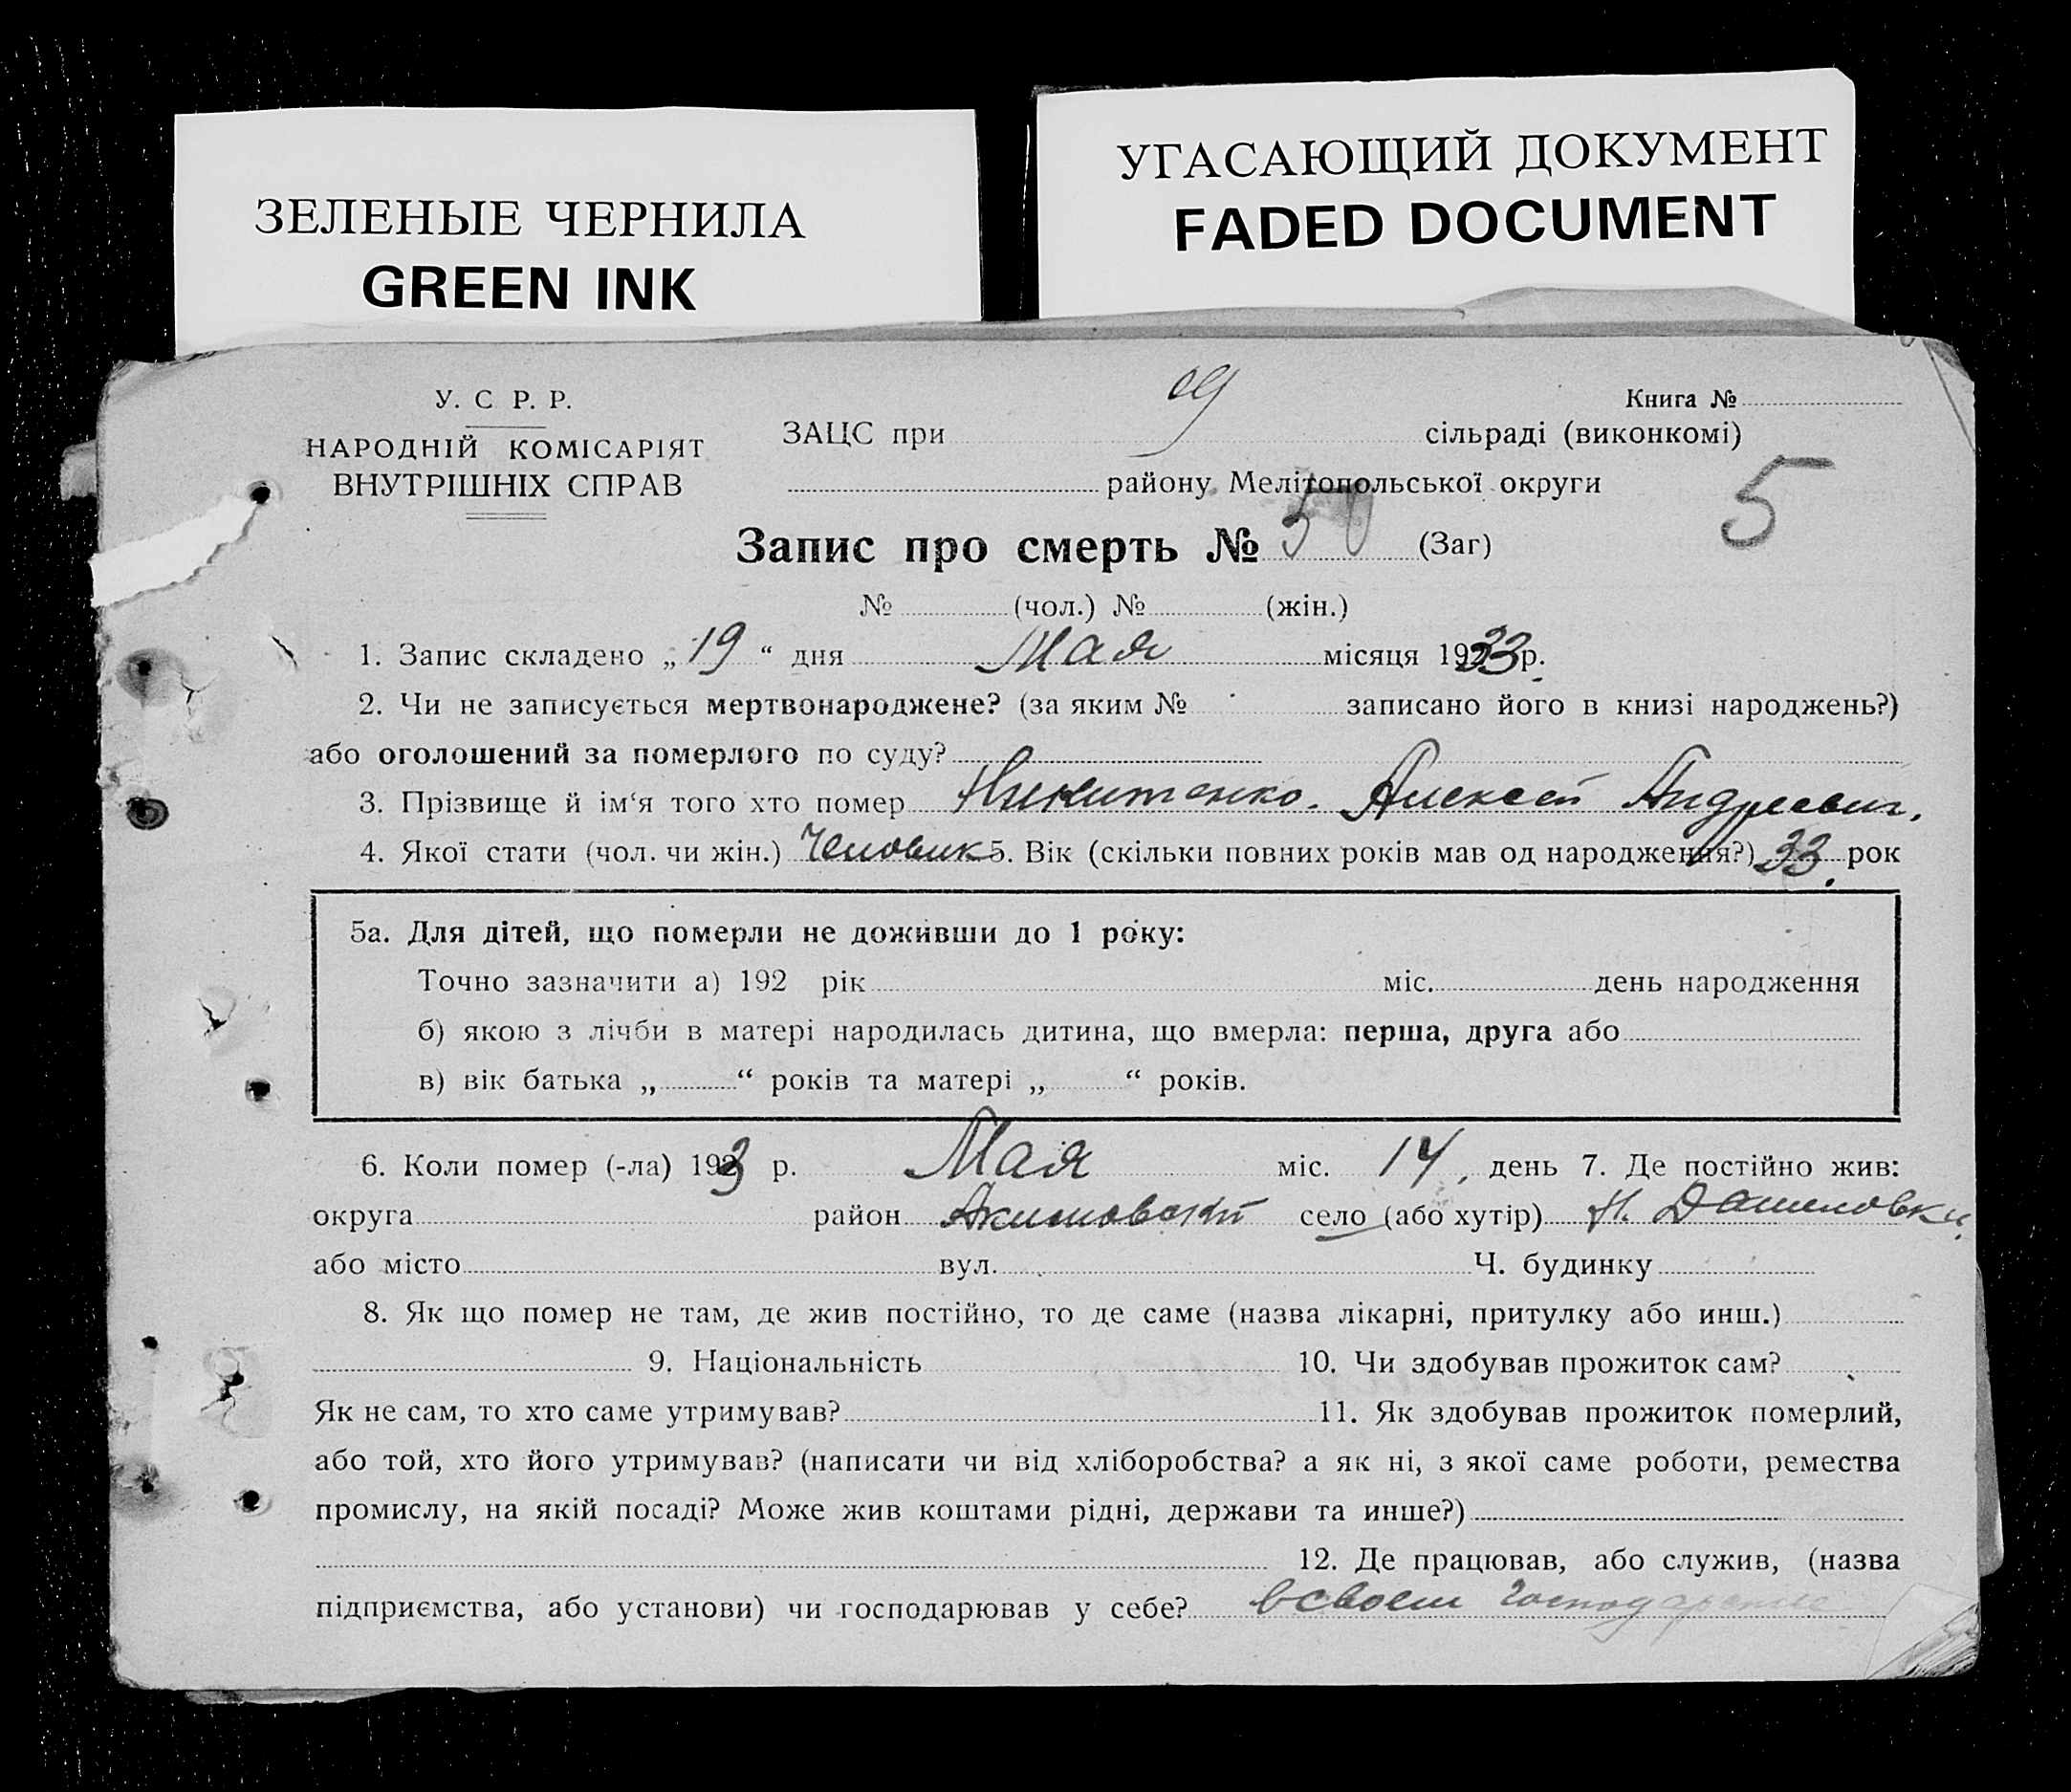 ЗЕЛЕНЫЕ ЧЕРНИЛА
GREEN INK
УГАСАЮЩИЙ ДОКУМЕНТ
FADED DOCUMENT
У. С Р. Р.
НАРОДНІЙ КОМІСАРІЯТ
ВНУТРІШНІХ СПРАВ
Книга №
ЗАЦС при сільраді (виконкомі)
району Мелітопольської округи
5
Запис про смерть № 50 (Заг)
№ (чол.) № (жін.)
1. Запис складено „19“ дня Мая місяця 1933 р.
2. Чи не записується мертвонароджене? (за яким № записано його в книзі народжень?)
або оголошений за померлого по суду?
3. Прізвище й ім‘я того хто помер Никитенко. Алексей Андреевич.
4. Якої стати (чол. чи жін.) Человик 5. Вік (скільки повних років мав од народження?) 33. рок
5а. Для дітей, що померли не доживши до 1 року:
Точно зазначити а) 192 рік міс. день народження
б) якою з лічби в матері народилась дитина, що вмерла: перша, друга або
в) вік батька „ “ років та матері „ “ років.
6. Коли помер (-ла) 193 р. Мая міс. 14, день 7. Де постійно жив:
округа район Акимовский село (або хутір) Н. Даниловки
або місто вул. Ч. будинку
8. Як що помер не там, де жив постійно, то де саме (назва лікарні, притулку або инш.)
9. Національність 10. Чи здобував прожиток сам?
Як не сам, то хто саме утримував? 11. Як здобував прожиток померлий,
або той, хто його утримував? (написати чи від хліборобства? а як ні, з якої саме роботи, ремества
промислу, на якій посаді? Може жив коштами рідні, держави та инше?)
12. Де працював, або служив, (назва
підприємства, або установи) чи господарював у себе? в своем